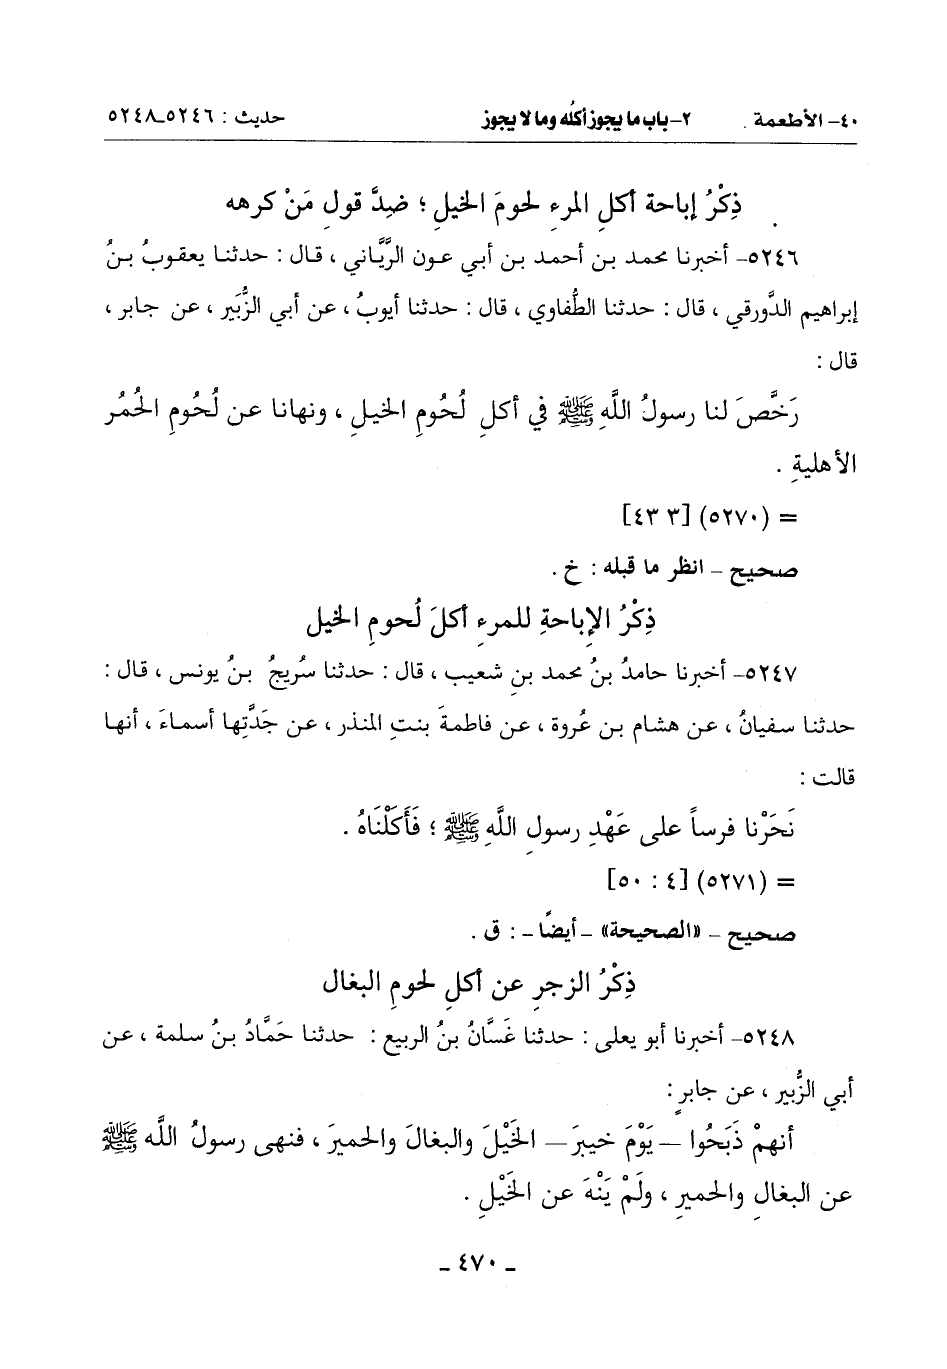 ٤٠- الأطعمة . ٢-باب ما يجوز أكلُه وما لا يجوز حديث : ٥٢٤٦_٥٢٤٨
ذِكْرُ إباحة أكلِ المرءِ لحومَ الخيلِ ؛ ضِدَّ قولِ مَنْ كرهه
٥٢٤٦- أخبرنا محمد بن أحمد بن أبي عون الرَّيَّاني ، قال : حدثنا يعقوبُ بنُ
إبراهيم الدَّورقي ، قال : حدثنا الطُّفاوي ، قال : حدثنا أيوبُ ، عن أبي الزُّبَير ، عن جابر ،
قال :
رَخَّصَ لنا رسولُ اللَّهِ ﷺ في أكلِ لُحُومِ الخيلِ ، ونهانا عن لُحُومِ الحُمُر
الأهليةِ .
= (٥٢٧٠) [٣ ٤٣]
صحيح - انظر ما قبله : خ .
ذِكْرُ الإباحةِ للمرءِ أكلَ لُحومِ الخيل
٥٢٤٧- أخبرنا حامدُ بنُ محمد بنِ شعيب ، قال : حدثنا سُريجُ بنُ يونس ، قال :
حدثنا سفيانُ ، عن هشام بن عُروة ، عن فاطمةَ بنتِ المنذر ، عن جَدَّتِها أسماءَ ، أنها
قالت :
نَحَرْنا فرساً على عَهْدِ رسولِ اللَّهِ ﷺ ؛ فَأَكَلْنَاهُ .
= (٥٢٧١) [٤ : ٥٠]
صحيح - «الصحيحة» - أيضًا - : ق .
ذِكْرُ الزجرِ عن أكلِ لحومِ البغال
٥٢٤٨- أخبرنا أبو يعلى : حدثنا غَسَّانُ بنُ الربيع : حدثنا حَمَّادُ بنُ سلمة ، عن
أبي الزُّبير ، عن جابرٍ :
أنهمْ ذَبَحُوا — يَوْمَ خيبرَ — الخَيْلَ والبغالَ والحميرَ ، فنهى رسولُ اللَّه ﷺ
عن البغالِ والحميرِ ، ولَمْ يَنْهَ عن الخَيْلِ .
- ٤٧٠ -